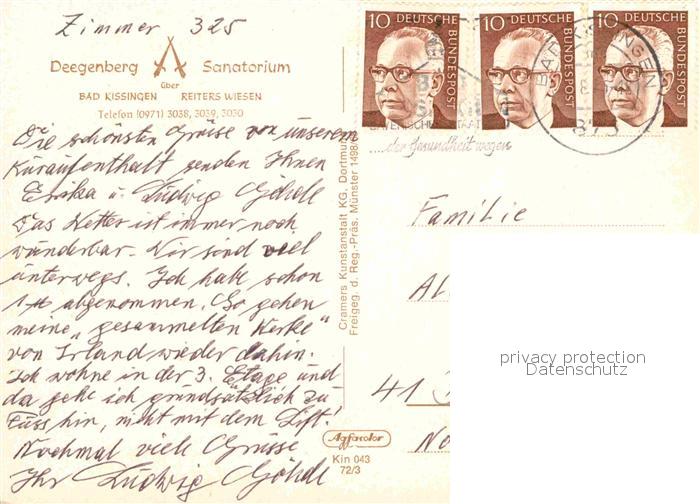 Zimmer 325
Deegenberg Sanatorium
über
BAD KISSINGEN REITERS WIESEN
Telefon (0971) 3038, 3039, 3030
Die schönsten Grüsse von unserem
Kuraufenthalt senden Ihnen
Erika u. Ludwig Göhdl
Das Wetter ist immer noch
wunderbar. Wir sind viel
unterwegs. Ich habe schon
1 ℔ abgenommen. So gehen
meine „gesammelten Werke"
von Irland wieder dahin.
Ich wohne in der 3. Etage und
da gehe ich grundsätzlich zu
Fuss hin, nicht mit dem Lift!
Nochmal viele Grüsse
Ihr Ludwig Göhdl
Cramers Kunstanstalt KG, Dortmund
Freigeg. d. Reg.-Präs. Münster 1498/
Agfacolor
Kin 043
72/3
10 DEUTSCHE BUNDESPOST
10 DEUTSCHE BUNDESPOST
10 DEUTSCHE BUNDESPOST
BAD KISSINGEN
873
der Gesundheit wegen
Familie
Al
41
No
privacy protection
Datenschutz